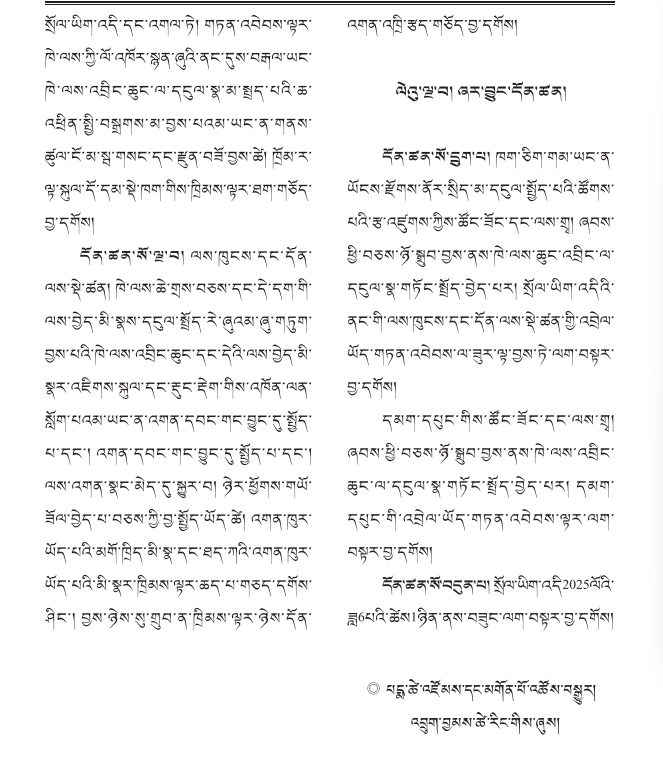 སྲོལ་ཡིག་འདི་དང་འགལ་ཏེ། གཏན་འབེབས་ལྟར་
ཁེ་ལས་ཀྱི་ལོ་འཁོར་སྙན་ཞུའི་ནང་དུས་བརྒལ་ཡང་
ཁེ་ལས་འབྲིང་ཆུང་ལ་དངུལ་སྣ་མ་སྤྲད་པའི་ཆ་
འཕྲིན་སྤྱི་བསྒྲགས་མ་བྱས་པའམ་ཡང་ན་གནས་
ཚུལ་ངོ་མ་སྦ་གསང་དང་རྫུན་བཟོ་བྱས་ཚེ། ཁྲོམ་ར་
ལྟ་སྐུལ་དོ་དམ་སྡེ་ཁག་གིས་ཁྲིམས་ལྟར་ཐག་གཅོད་
བྱ་དགོས།
དོན་ཚན་སོ་ལྔ་བ། ལས་ཁུངས་དང་དོན་
ལས་སྡེ་ཚན། ཁེ་ལས་ཆེ་གྲས་བཅས་དང་དེ་དག་གི་
ལས་བྱེད་མི་སྣས་དངུལ་སྤྲོད་རེ་ཞུའམ་ཞུ་གཏུག་
བྱས་པའི་ཁེ་ལས་འབྲིང་ཆུང་དང་དེའི་ལས་བྱེད་མི་
སྣར་འཇིགས་སྐུལ་དང་རྡུང་རྡེག་གིས་འཁོན་ལན་
སློག་པའམ་ཡང་ན་འགན་དབང་གང་བྱུང་དུ་སྤྱོད་
པ་དང་། འགན་དབང་གང་བྱུང་དུ་སྤྱོད་པ་དང་།
ལས་འགན་སྣང་མེད་དུ་སྐྱུར་བ། ཉེར་ཕྱོགས་གཡོ་
ཟོལ་བྱེད་པ་བཅས་ཀྱི་བྱ་སྤྱོད་ཡོད་ཚེ། འགན་ཁུར་
ཡོད་པའི་མགོ་ཁྲིད་མི་སྣ་དང་ཐད་ཀའི་འགན་ཁུར་
ཡོད་པའི་མི་སྣར་ཁྲིམས་ལྟར་ཆད་པ་གཅད་དགོས་
ཤིང་། བྱས་ཉེས་སུ་གྲུབ་ན་ཁྲིམས་ལྟར་ཉེས་དོན་
འགན་འཁྲི་རྩད་གཅོད་བྱ་དགོས།
ལེའུ་ལྔ་བ། ཞར་བྱུང་དོན་ཚན།
དོན་ཚན་སོ་དྲུག་པ། ཁག་ཅིག་གམ་ཡང་ན་
ཡོངས་རྫོགས་ནོར་སྲིད་མ་དངུལ་སྤྱོད་པའི་ཚོགས་
པའི་རྩ་འཛུགས་ཀྱིས་ཚོང་ཟོང་དང་ལས་གྲྭ། ཞབས་
ཕྱི་བཅས་ཉོ་སྒྲུབ་བྱས་ནས་ཁེ་ལས་ཆུང་འབྲིང་ལ་
དངུལ་སྣ་གཏོང་སྤྲོད་བྱེད་པར། སྲོལ་ཡིག་འདིའི་
ནང་གི་ལས་ཁུངས་དང་དོན་ལས་སྡེ་ཚན་གྱི་འབྲེལ་
ཡོད་གཏན་འབེབས་ལ་ཟུར་ལྟ་བྱས་ཏེ་ལག་བསྟར་
བྱ་དགོས།
དམག་དཔུང་གིས་ཚོང་ཟོང་དང་ལས་གྲྭ།
ཞབས་ཕྱི་བཅས་ཉོ་སྒྲུབ་བྱས་ནས་ཁེ་ལས་འབྲིང་
ཆུང་ལ་དངུལ་སྣ་གཏོང་སྤྲོད་བྱེད་པར། དམག་
དཔུང་གི་འབྲེལ་ཡོད་གཏན་འབེབས་ལྟར་ལག་
བསྟར་བྱ་དགོས།
དོན་ཚན་སོ་བདུན་པ། སྲོལ་ཡིག་འདི་2025ལོའི་
ཟླ6པའི་ཚེས1ཉིན་ནས་བཟུང་ལག་བསྟར་བྱ་དགོས།
◎ པདྨ་ཚེ་འཛོམས་དང་མགོན་པོ་འཚོས་བསྒྱུར།
འབྲུག་བྱམས་ཚེ་རིང་གིས་ཞུས།